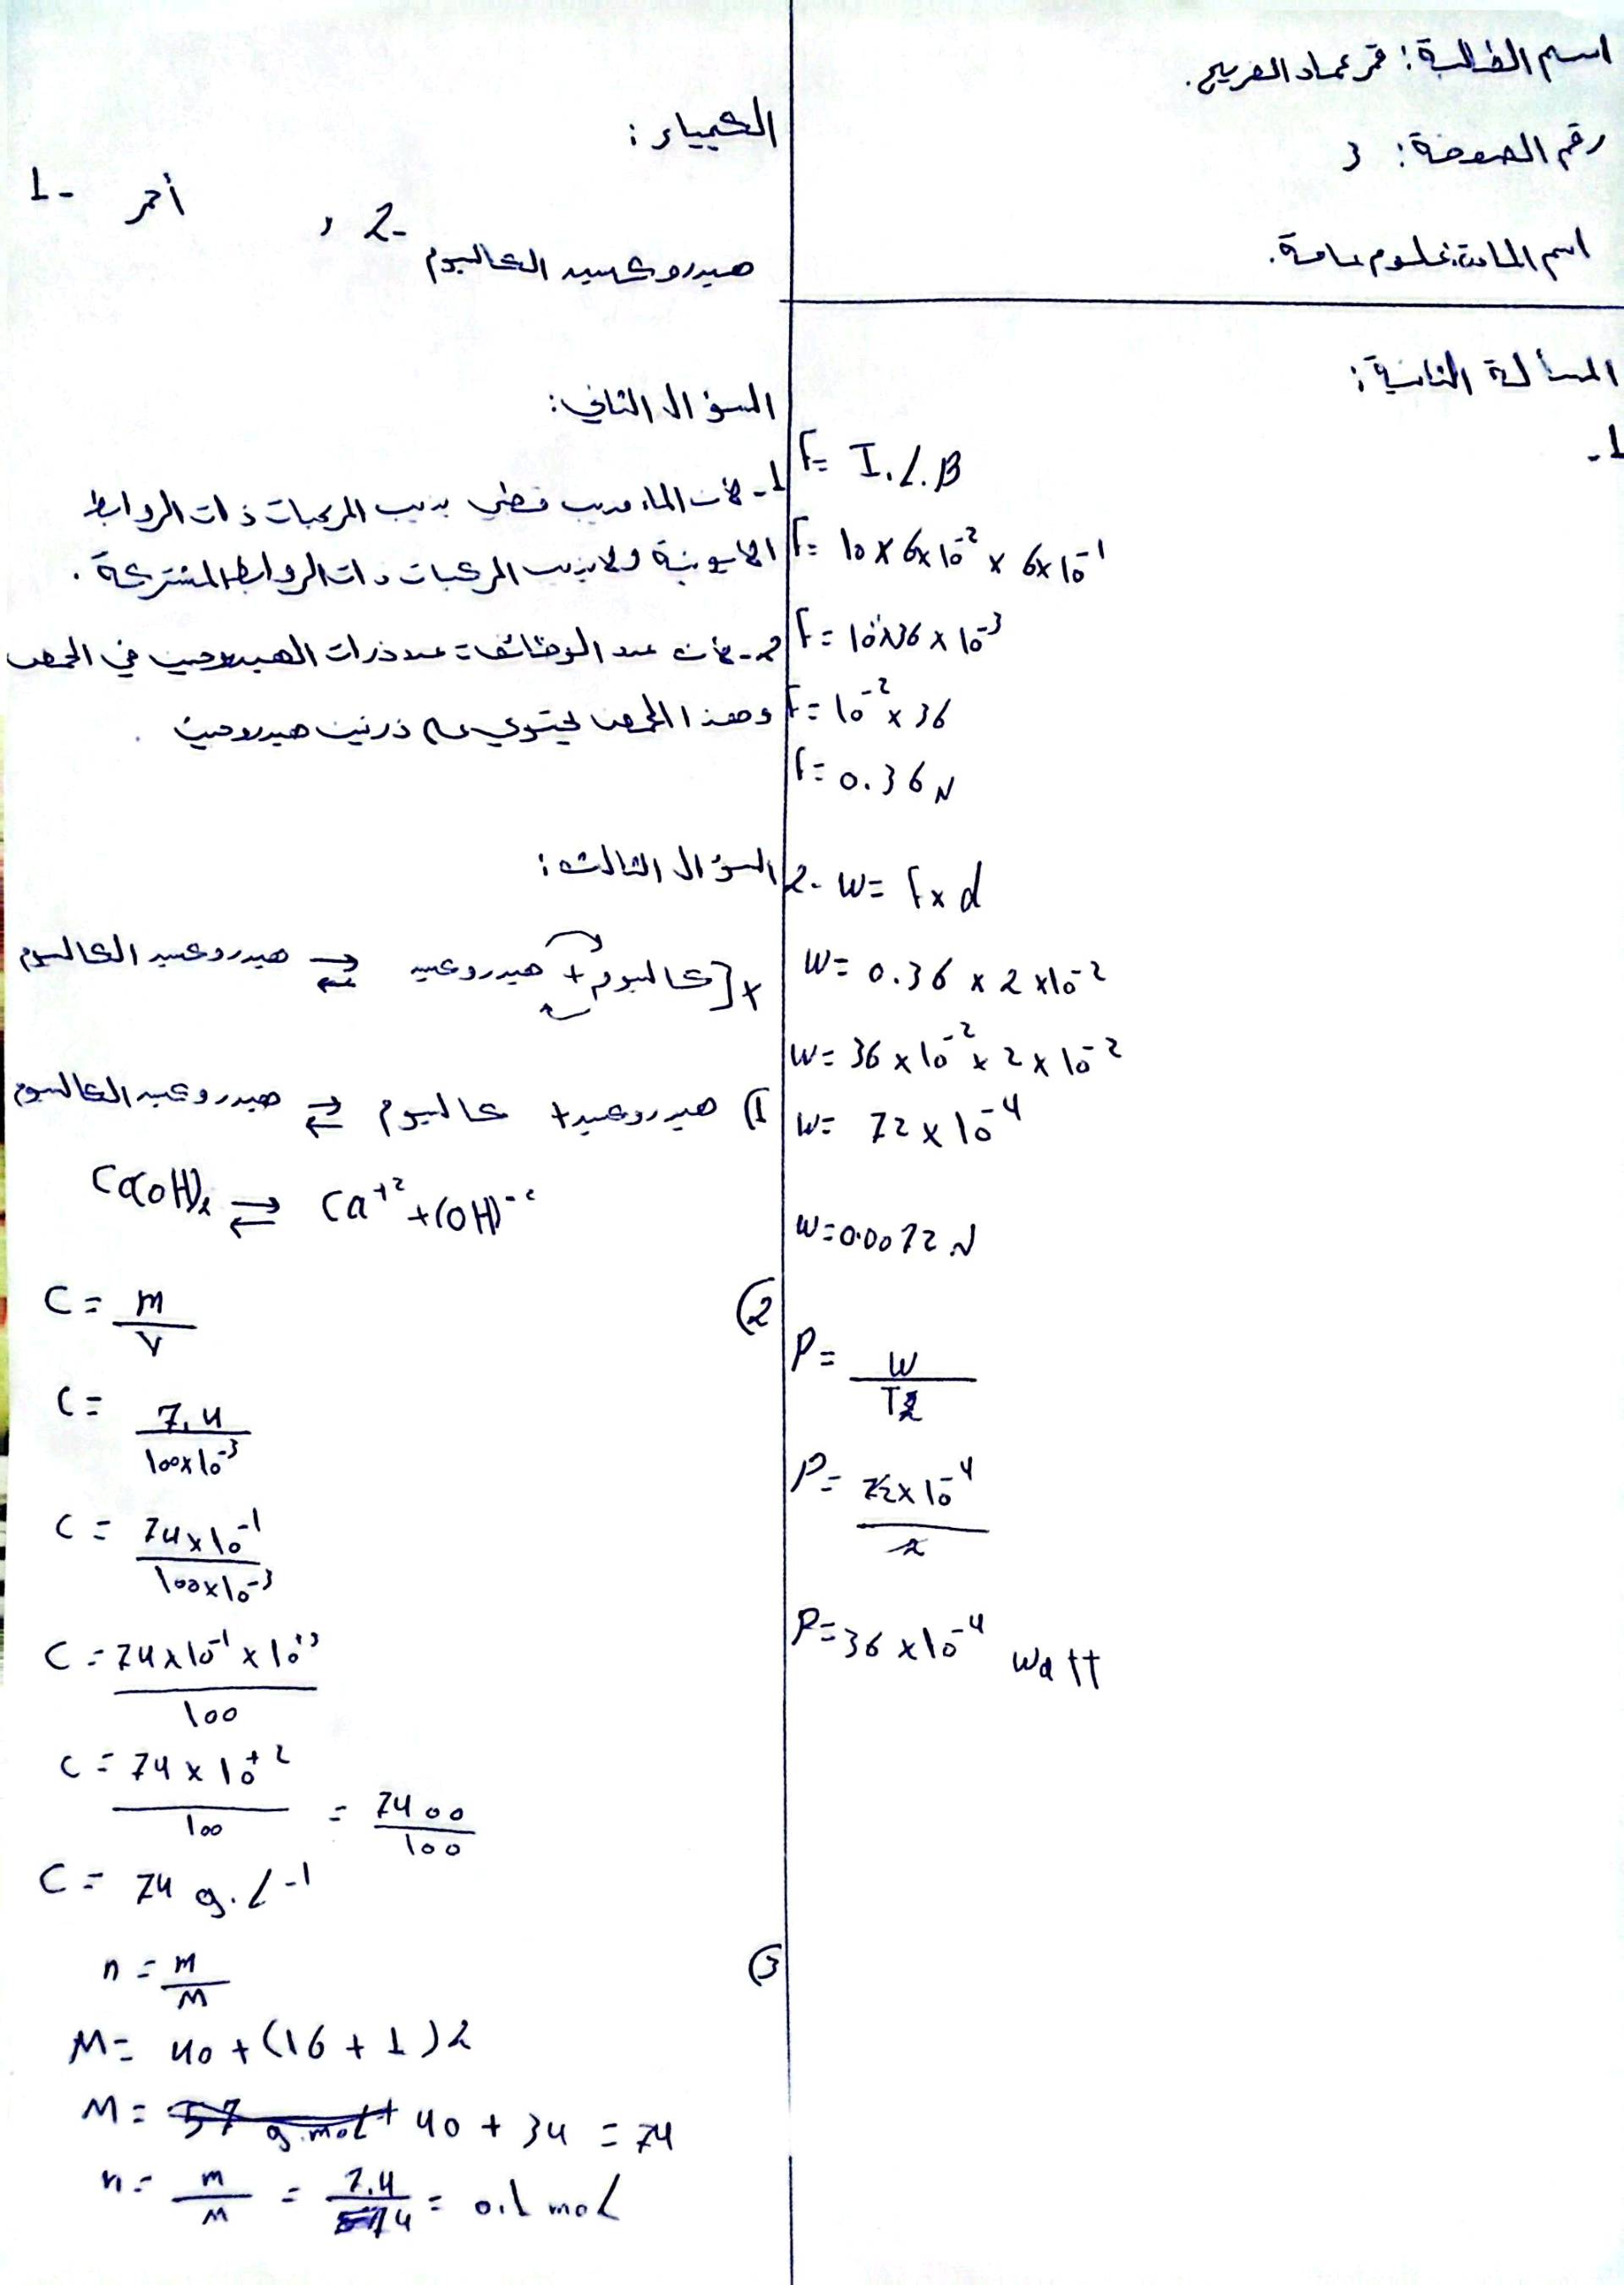 اسم الطالبة: قمر عماد الفريج.
رقم الصفحة: 3
اسم المادة: علوم عامة.
المسألة الثانية:
1-
F= I.L.B
F= 10 x 6x10^-2 x 6x10^-1
F= 10x36 x 10^-3
F= 10^-2 x 36
F= 0.36 N
2- W= F x d
W= 0.36 x 2 x10^-2
W= 36 x 10^-2 x 2 x 10^-2
W= 72 x 10^-4
W=0.0072 N
P= W / T
P= 72x10^-4 / 2
P=36 x10^-4 watt
الكيمياء:
1- أحمر , 2-
هيدروكسيد الكالسيوم
السؤال الثاني:
1- لأن الماء مذيب قطبي يذيب المركبات ذات الروابط
الايونية ولا يذيب المركبات ذات الروابط المشتركة.
2- لأن عدد الوظائف = عدد ذرات الهيدروجين في الحمض
وهذا الحمض يحتوي على ذرتين هيدروجين.
السؤال الثالث:
x [كالسيوم + هيدروكسيد ⇌ هيدروكسيد الكالسيوم
1) هيدروكسيد + كالسيوم ⇌ هيدروكسيد الكالسيوم
Ca(OH)2 ⇌ Ca^+2 + (OH)^-2
2) C = m / V
C = 7.4 / 100x10^-3
C = 74x10^-1 / 100x10^-3
C = 74x10^-1 x 10^+3 / 100
C = 74 x 10^+2 / 100 = 7400 / 100
C = 74 g.L^-1
3) n = m / M
M= 40 + (16 + 1)2
M= 40 + 34 = 74
n= m / M = 7.4 / 74 = 0.1 mol